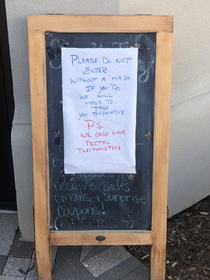 PLEASE DO NOT
ENTER
WITHOUT A MASK
IF YOU DO
WE WILL
HAVE TO
TAKE
YOUR TEMPERATURE
PS
WE ONLY HAVE
RECTAL
THERMOMETERS
receive Sales
emails & surprise
coupons!